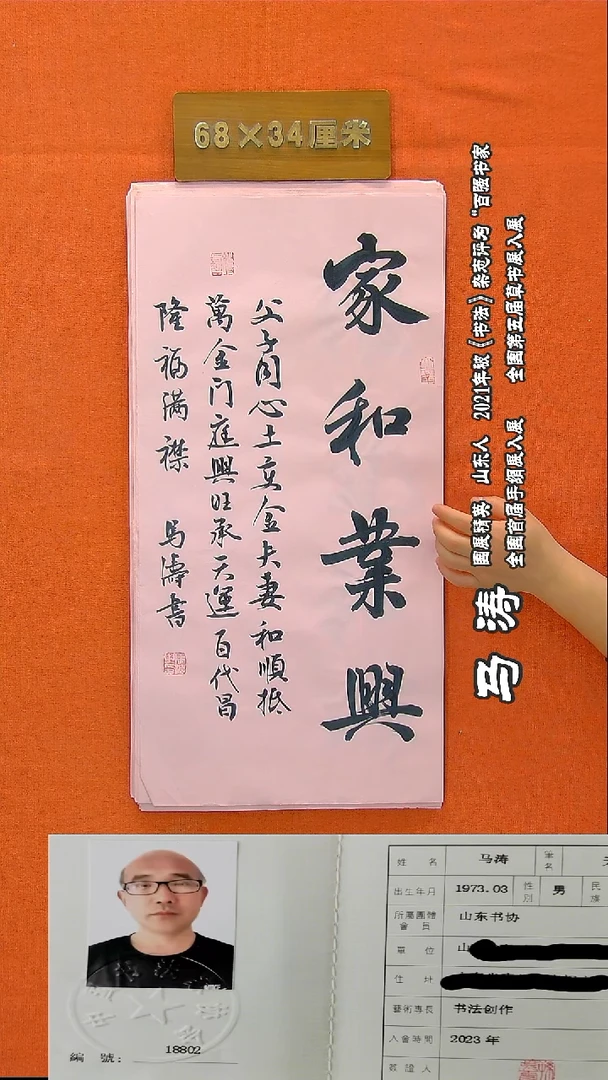 68×34厘米
家和業興
父子同心土变金夫妻和順抵
萬金门庭興旺承天運百代昌
隆福满襟 马濤書
马涛
国展精英 山东人 2021年被《书法》杂志评为“百强书家
全国首届手卷展入展 全国第五届草书展入展
姓名 马涛 筆名
出生年月 1973.03 性別 男 民族
所屬團體會員 山东书协
單位 山
住址
藝術專長 书法创作
入會時間 2023年
簽證人
編號: 18802